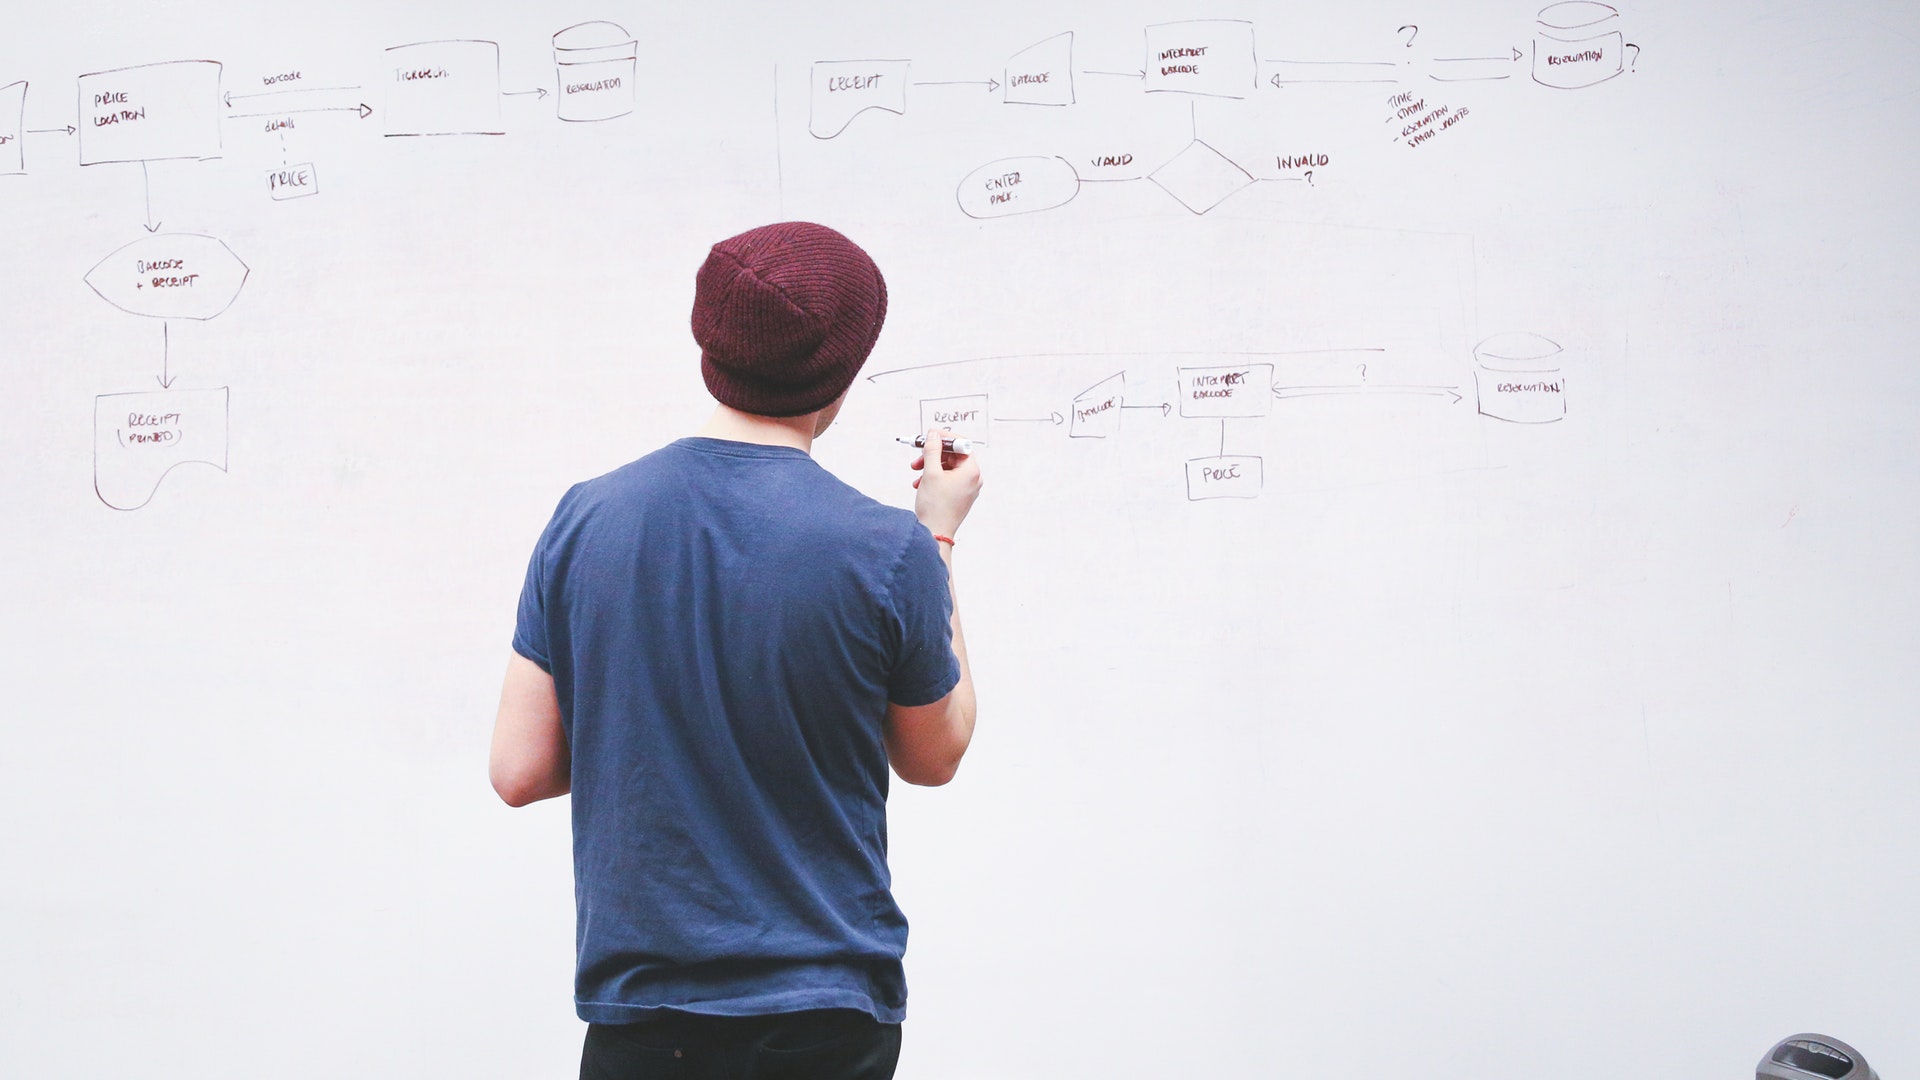 PRICE
LOCATION
barcode
details
PRICE
Ticketech.
RESERVATION
BARCODE
+ RECEIPT
RECEIPT
(PRINTED)
RECEIPT
BARCODE
INTERPRET
BARCODE
?
RESERVATION
?
TIME
STAMP.
- RESERVATION
STATUS UPDATE
VALID
INVALID
?
ENTER
RECEIPT
?
BARCODE
INTERPRET
BARCODE
?
RESERVATION
PRICE